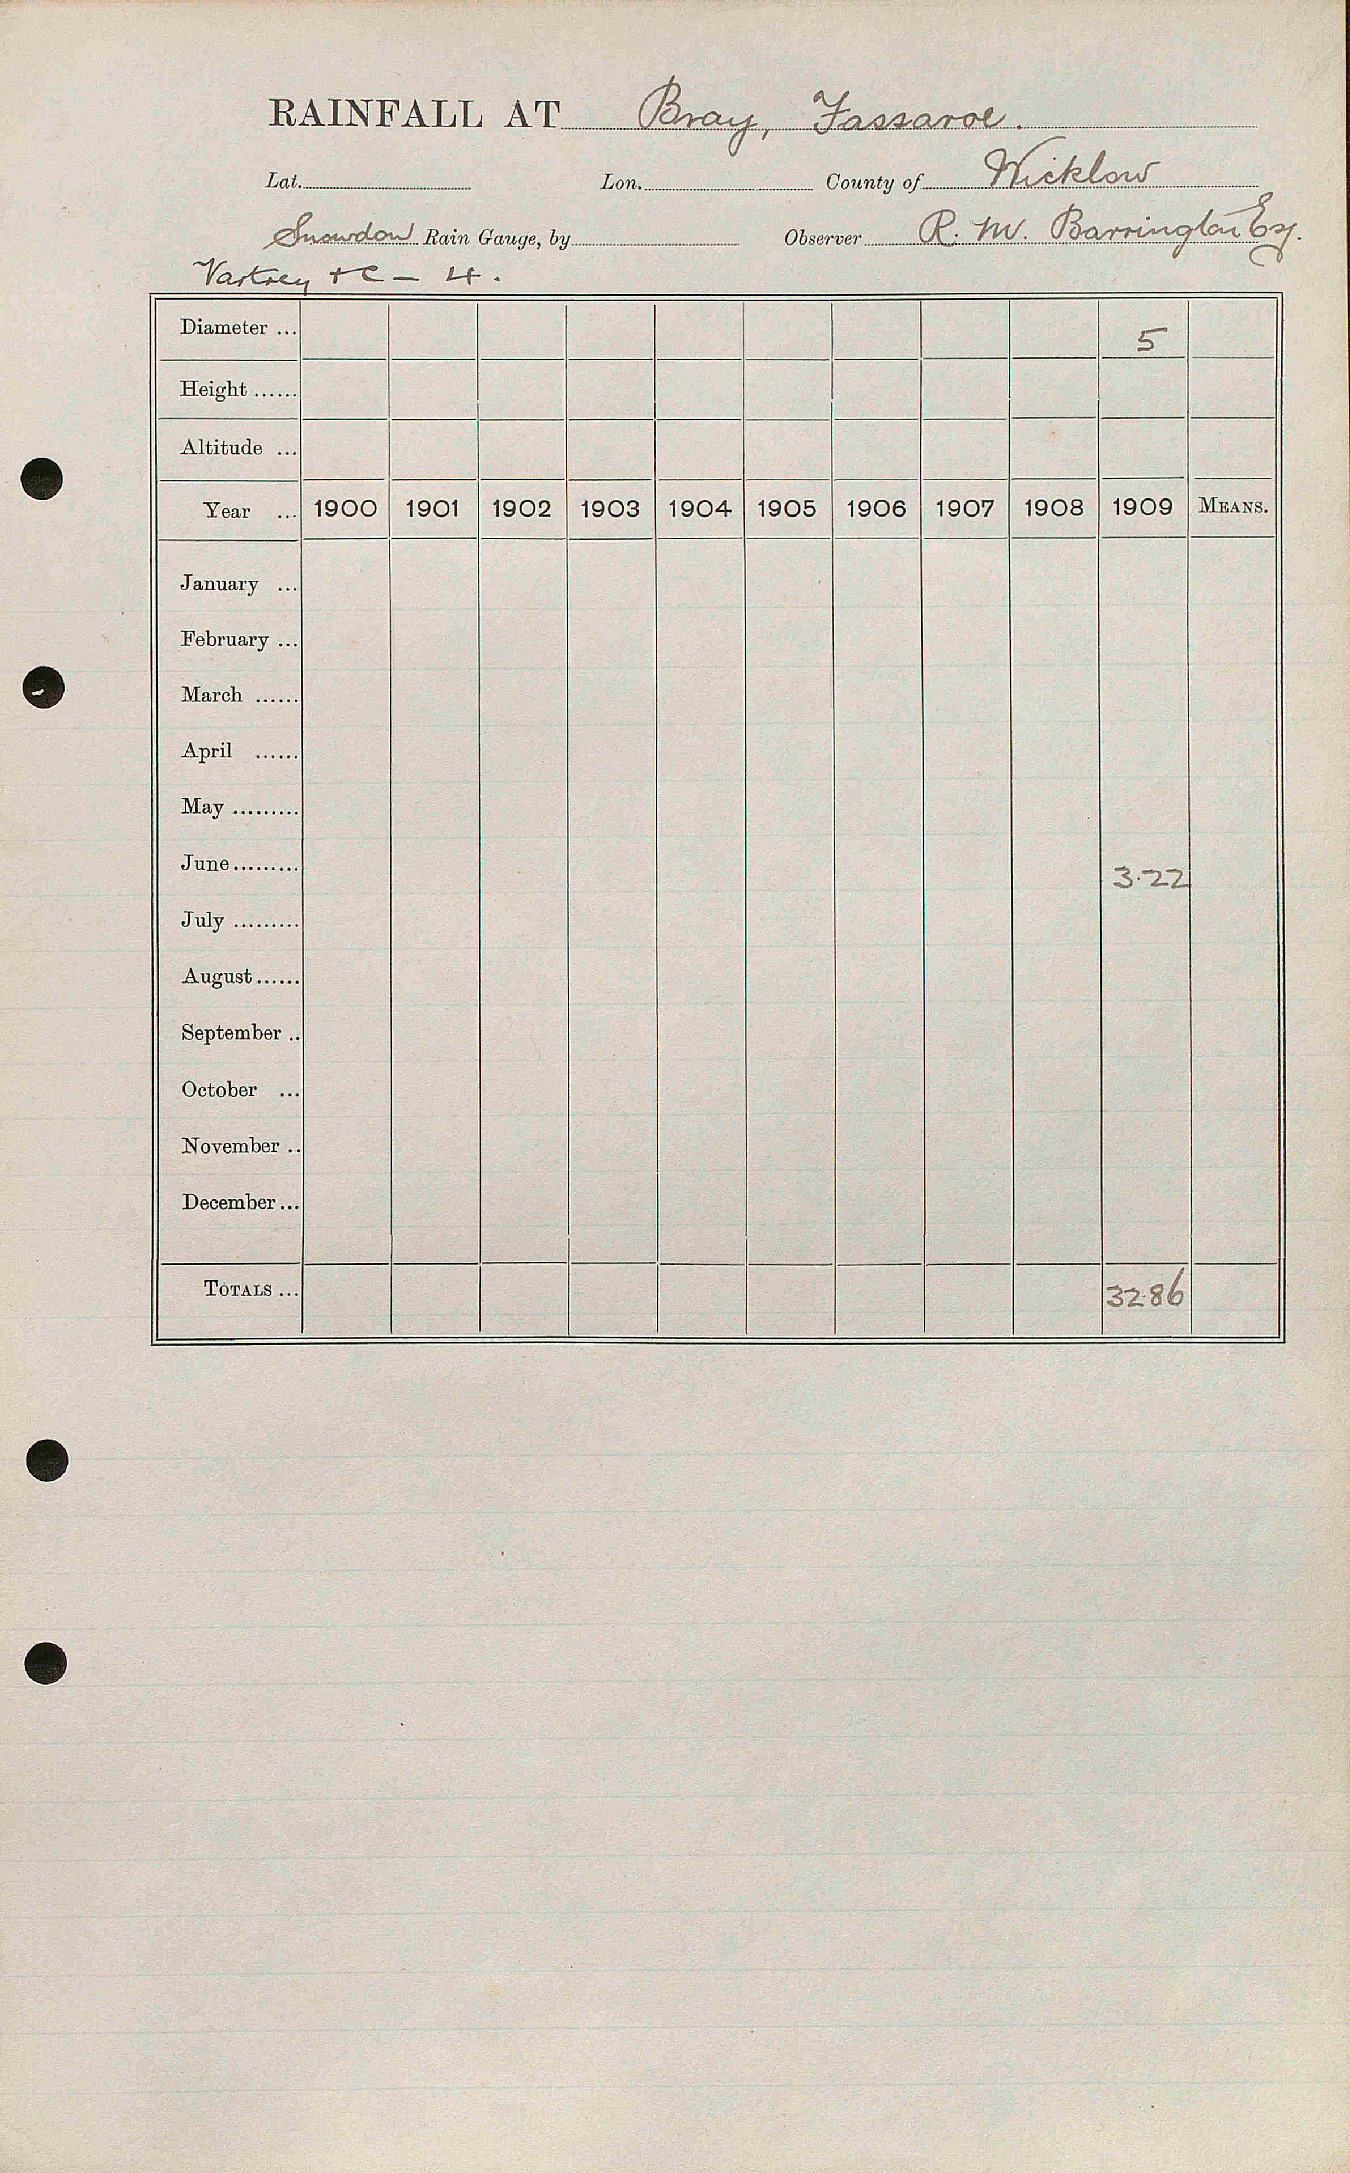 RAINFALL AT Bray, Fassaroe.
Lat. Lon. County of Wicklow
Snowdon Rain Gauge, by Observer R. M. Barrington Esq.
Vartrey &c — 4.
Diameter ... 5
Height ......
Altitude ...
Year ... 1900 1901 1902 1903 1904 1905 1906 1907 1908 1909 MEANS.
January ...
February ...
March ......
April ......
May .........
June ......... 3.22
July .........
August ......
September ..
October ...
November ..
December ...
TOTALS ... 32.86